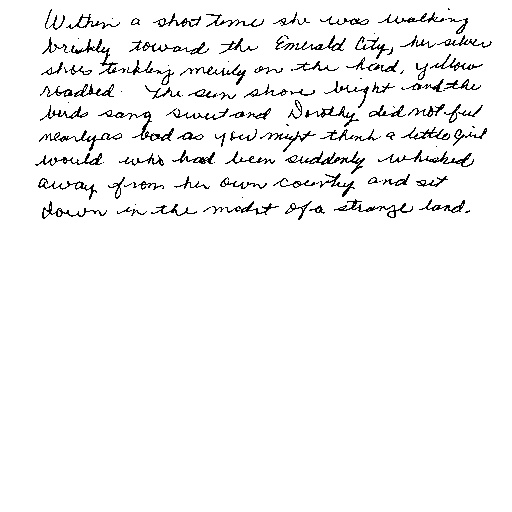 Within a short time she was walking
briskly toward the Emerald City, her silver
shoes tinkling merrily on the hard, yellow
roadbed. The sun shone bright and the
birds sang sweet and Dorothy did not feel
nearly as bad as you might think a little girl
would who had been suddenly whisked
away from her own country and set
down in the midst of a strange land.